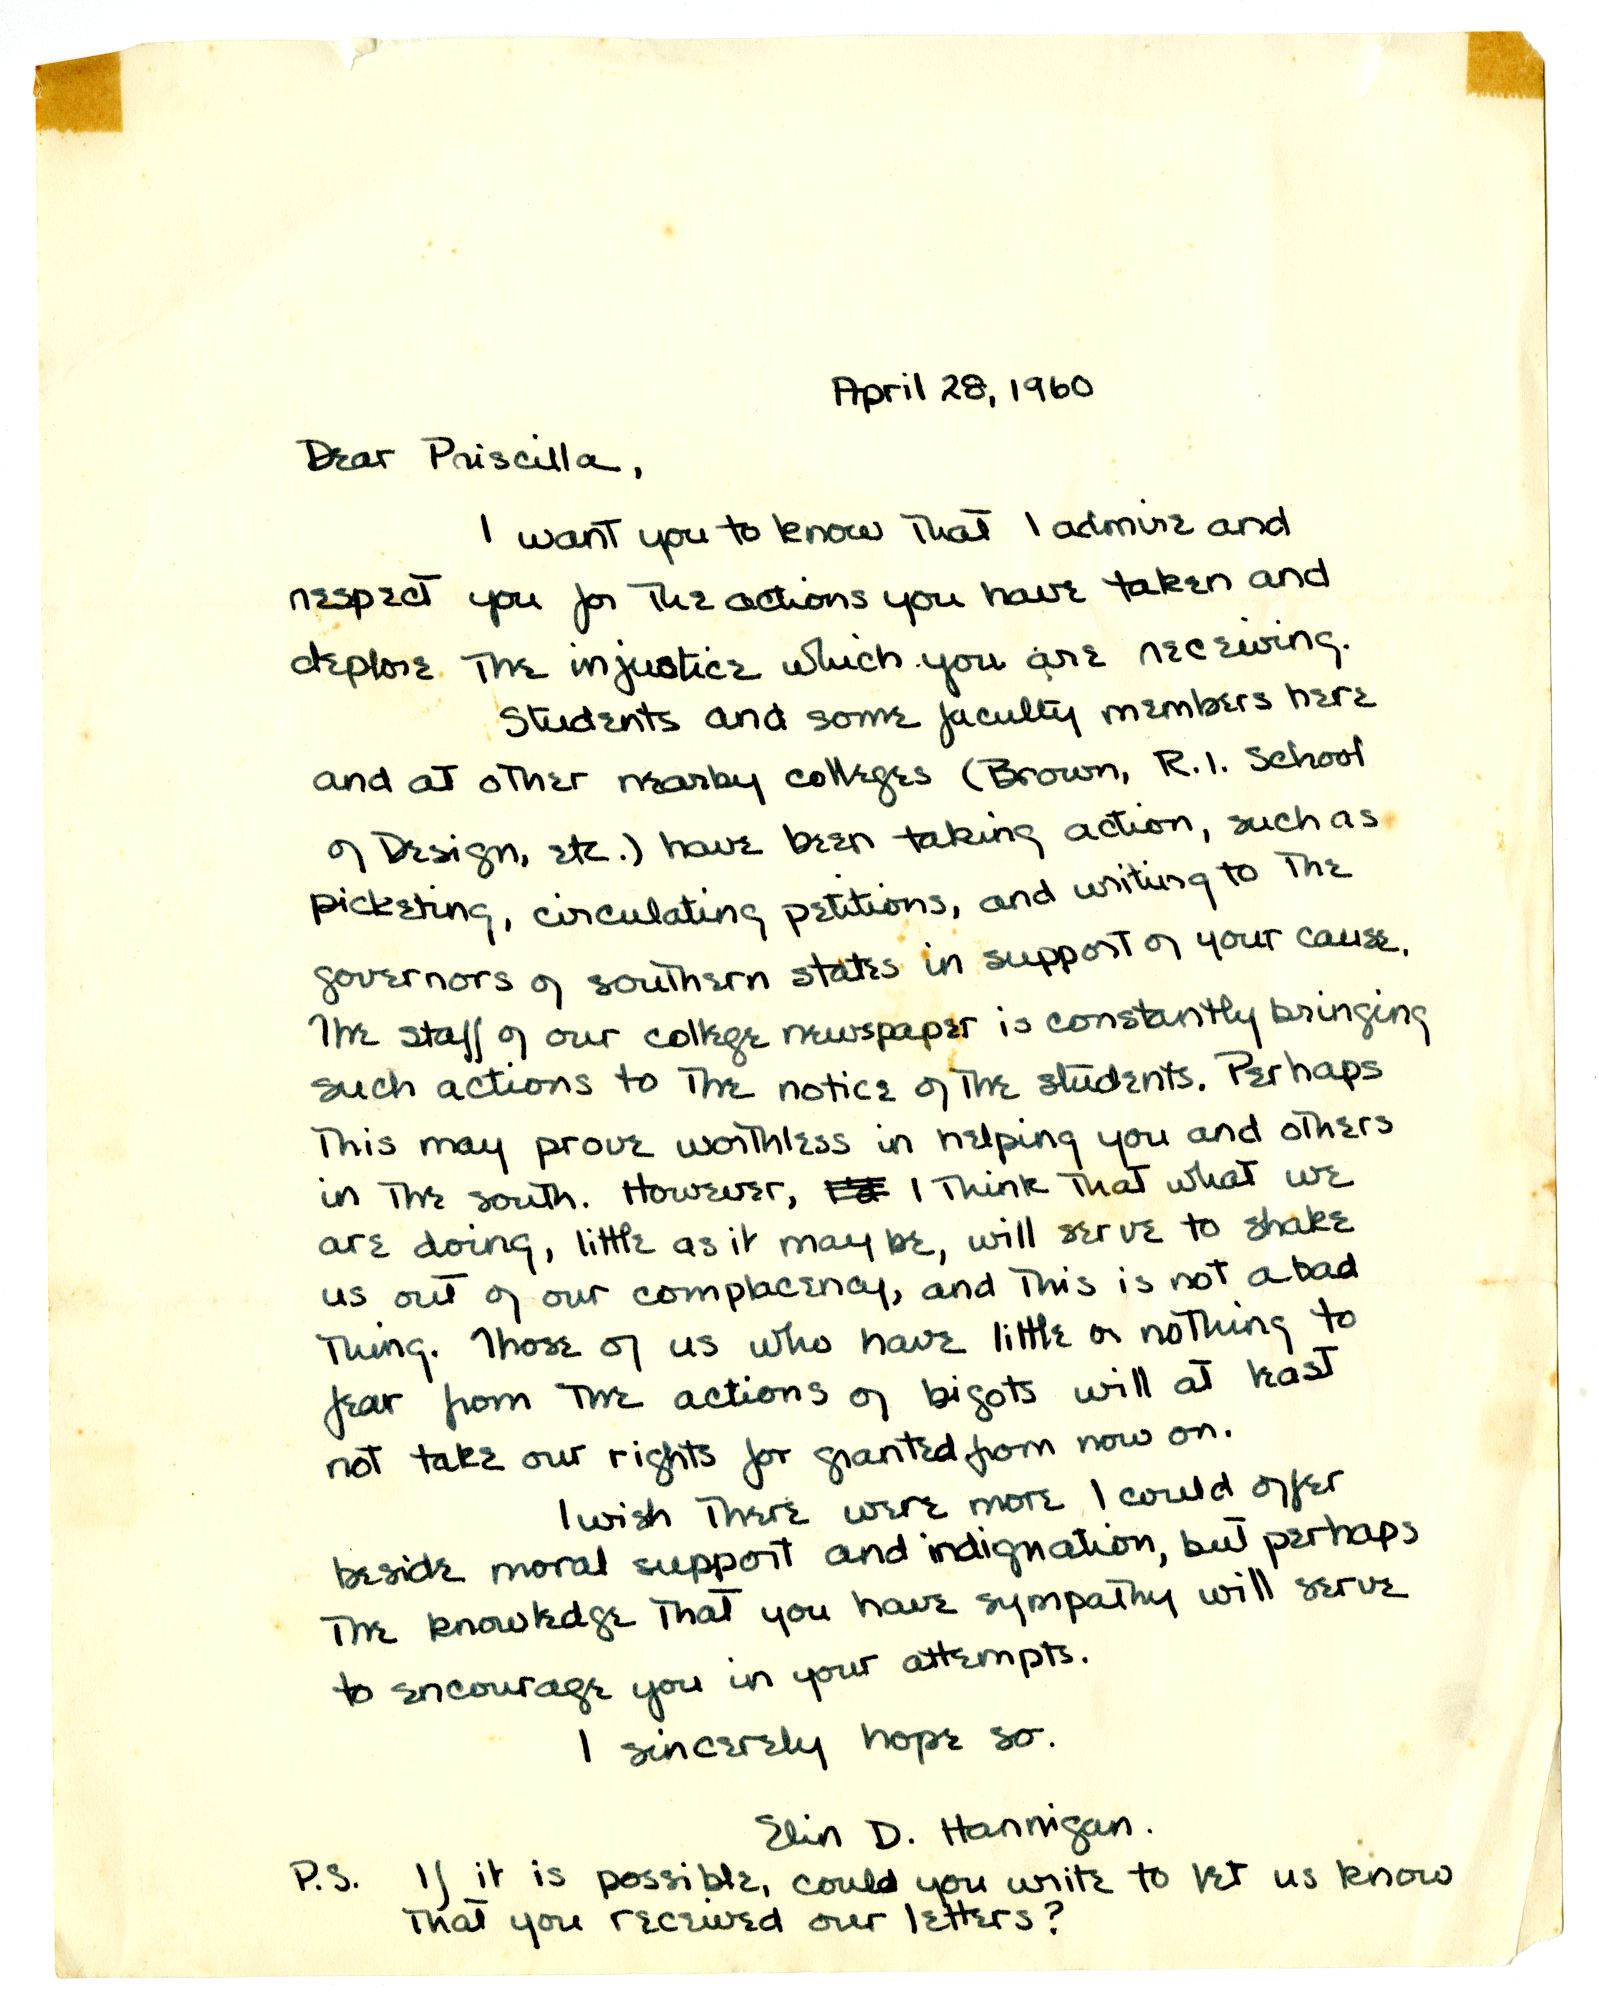 April 28, 1960
Dear Priscilla,
I want you to know that I admire and
respect you for the actions you have taken and
deplore the injustice which you are receiving.
Students and some faculty members here
and at other nearby colleges (Brown, R.I. School
of Design, etc.) have been taking action, such as
picketing, circulating petitions, and writing to the
governors of southern states in support of your cause.
The staff of our college newspaper is constantly bringing
such actions to the notice of the students. Perhaps
this may prove worthless in helping you and others
in the south. However, I think that what we
are doing, little as it may be, will serve to shake
us out of our complacency, and this is not a bad
thing. Those of us who have little or nothing to
fear from the actions of bigots will at least
not take our rights for granted from now on.
I wish there were more I could offer
beside moral support and indignation, but perhaps
the knowledge that you have sympathy will serve
to encourage you in your attempts.
I sincerely hope so.
Elin D. Hannigan.
P.S. If it is possible, could you write to let us know
that you received our letters?